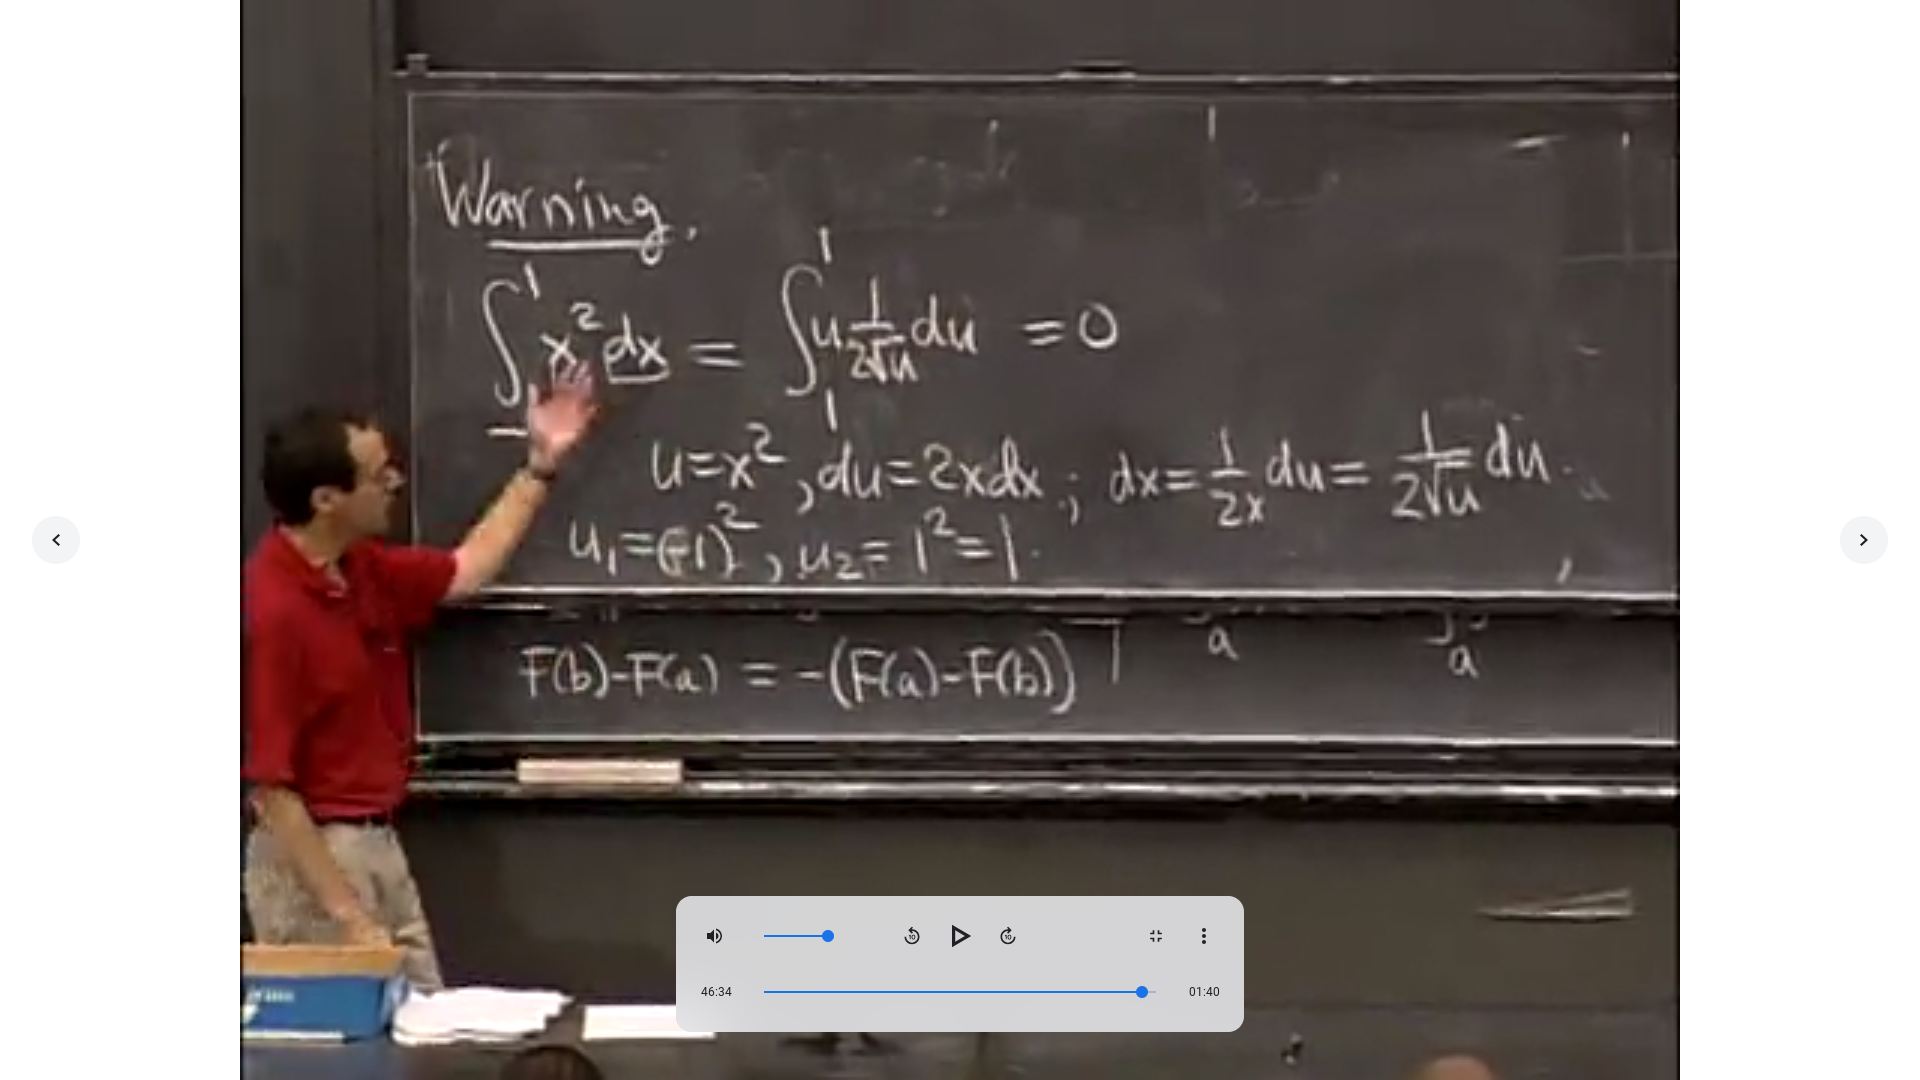 Warning.
∫₋₁¹ x² dx = ∫₁¹ u 1/(2√u) du = 0
u=x², du=2xdx; dx= 1/(2x) du = 1/(2√u) du.
u₁=(-1)², u₂=1²=1.
a a
F(b)-F(a) = -(F(a)-F(b))
10 10
46:34 01:40